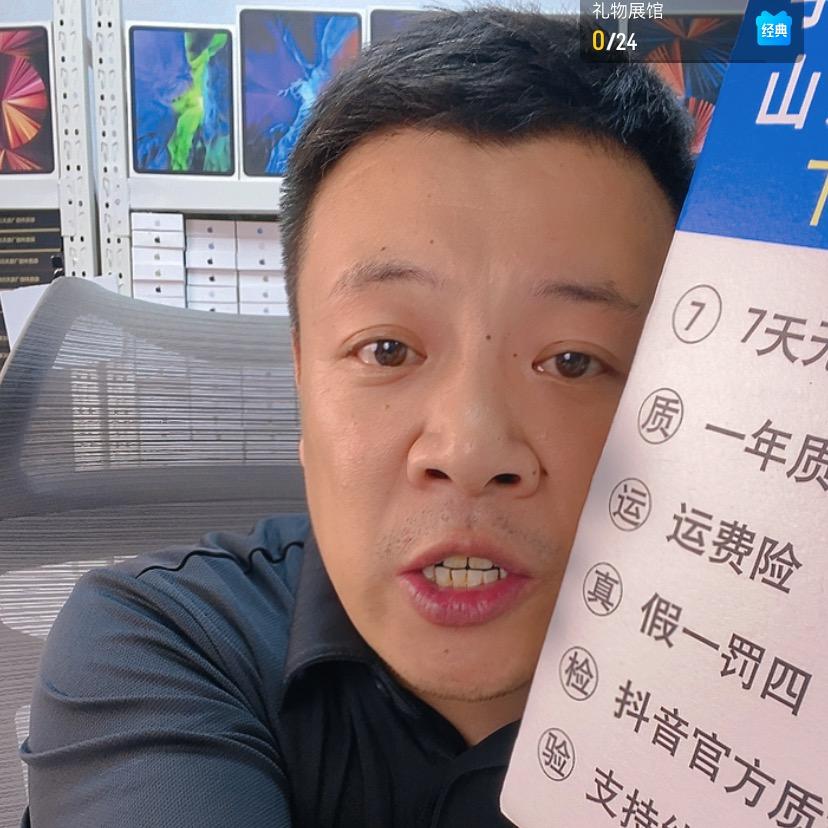 礼物展馆
0/24
经典
山
7 7天无
质 一年质
运 运费险
真 假一罚四
检 抖音官方质
验 支持